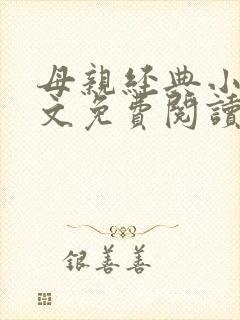 母親經典小
文免費閱讀
银善善